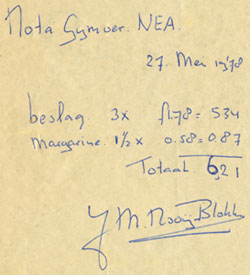 Nota Gymver. NEA.
27 Mei 1978
beslag 3x fl. 1.78 = 5.34
Margarine 1½ x 0.58 = 0.87
Totaal 6,21
M. Rooij-Blokk